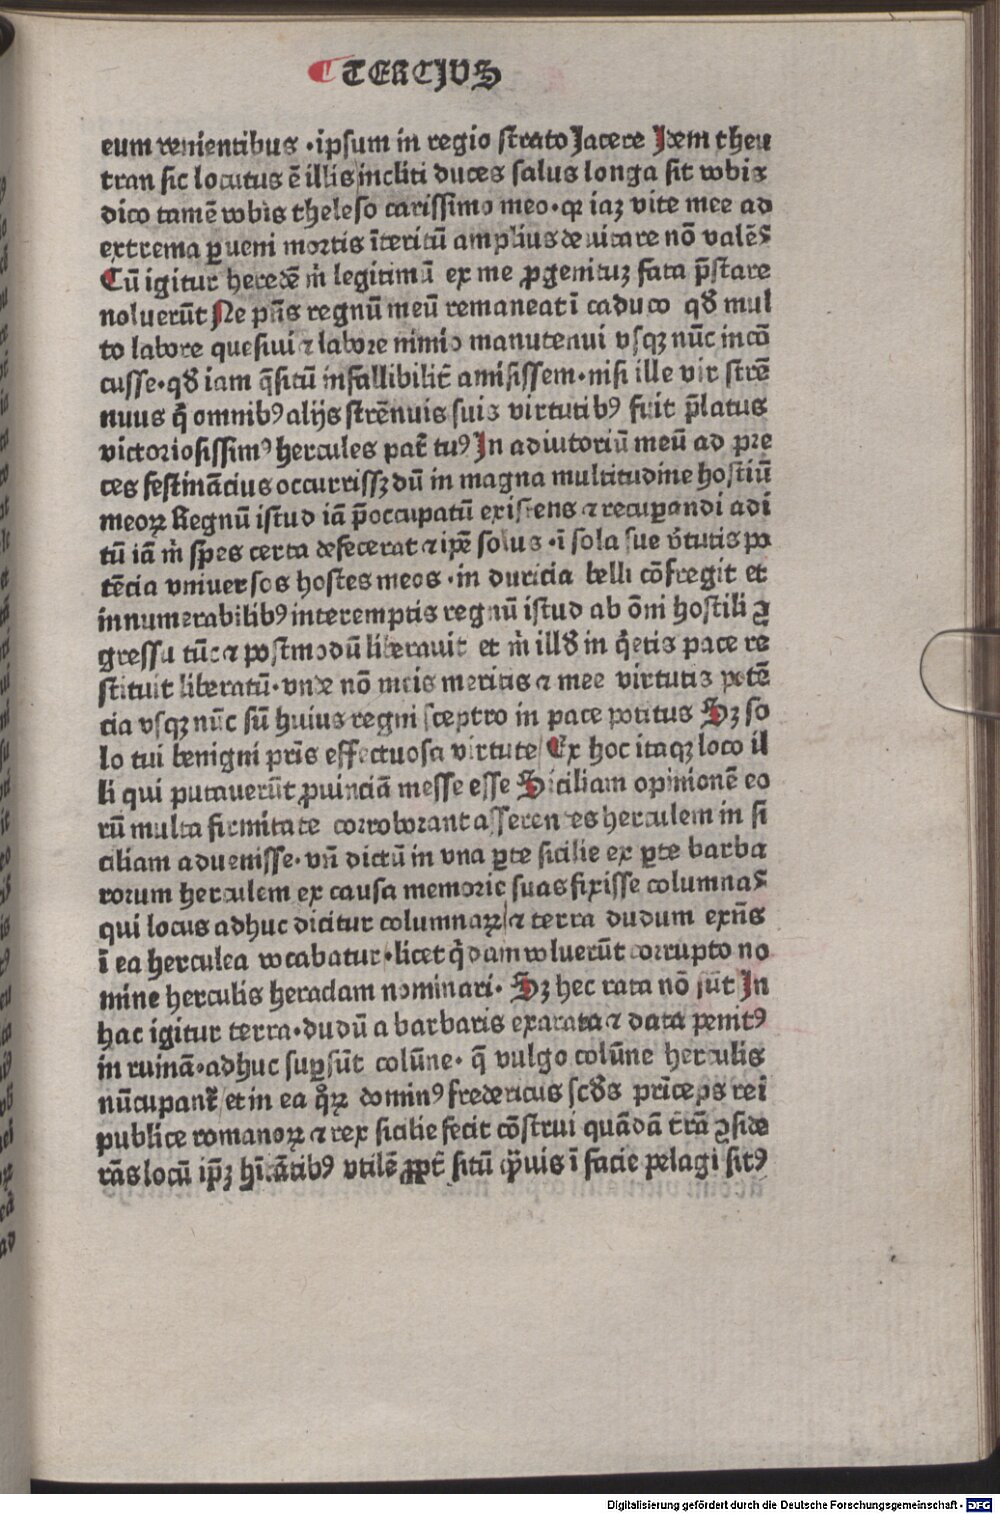 TERCIVS
eum venientibus · ipsum in regio strato Jacere Jdem theu
tran sic locutus ē illis incliti duces salus longa sit vobis
dico tamē vobis theleso carissimo meo · ꝙ iaꝫ vite mee ad
extrema ꝑueni mortis īteritū amplius deuitare nō valēs
Cū igitur heredē m̄ legitimū ex me ꝓgenituꝫ fata p̄stare
noluerūt Ne pn̄s regnū meū remaneat ī caduco qd̄ mul
to labore quesiui ⁊ labore nimio manutenui vsqꝫ nūc incō
cusse · qd̄ iam q̄situ infallibilit̄ amisissem · nisi ille vir strē
nuus q̄ omnibꝰ alijs strēnuis suis virtutibꝰ fuit p̄latus
victoriosissimꝰ hercules pat̄ tuꝰ In adiutoriū meū ad pre
ces festinācius occurrissꝫ dū in magna multitudine hostiū
meoꝝ Regnū istud iā p̄occupatū existens ⁊ recuꝑandi adi
tū iā m̄ spes certa defecerat ⁊ ip̄e solus · ī sola sue v̄tutis po
tēcia vniuersos hostes meos · in duricia belli cōfregit et
innumerabilibꝰ interemptis regnū istud ab ōni hostili ꝯ
gressu tūc ⁊ postmodū liberauit et m̄ illd̄ in q̄etis pace re
stituit liberatū · vnde nō meis meritis ⁊ mee virtutis potē
cia vsqꝫ nūc sū huius regni sceptro in pace potitus Sꝫ so
lo tui benigni pr̄is effectuosa virtute Ex hoc itaqꝫ loco il
li qui putauerūt ꝓuinciā messe esse Siciliam opinionē eo
rū multa firmitate corroborant asserentes herculem in si
ciliam aduenisse · vn̄ dictū in vna ꝑte sicilie ex ꝑte barba
rorum herculem ex causa memorie suas fixisse columnas
qui locus adhuc dicitur columnaꝝ ⁊ terra dudum exn̄s
ī ea herculea vocabatur · licet q̄dam voluerūt corrupto no
mine herculis heraclam nominari · Sꝫ hec rata nō sūt In
hac igitur terra · dudū a barbaris exarata ⁊ data penitꝰ
in ruinā · adhuc suꝑsūt colūne · q̄ vulgo colūne herculis
nūcupant᷑ et in ea q̊ꝝ dominꝰ fredericus scd̄s prīceps rei
publice romanoꝝ ⁊ rex sicilie fecit cōstrui quādā t̄rā ꝯside
rās locū ip̄ꝫ hītātibꝰ vtilē ꝓpt̄ sitū ꝙ̄uis ī facie pelagi sitꝰ
Digitalisierung gefördert durch die Deutsche Forschungsgemeinschaft · DFG